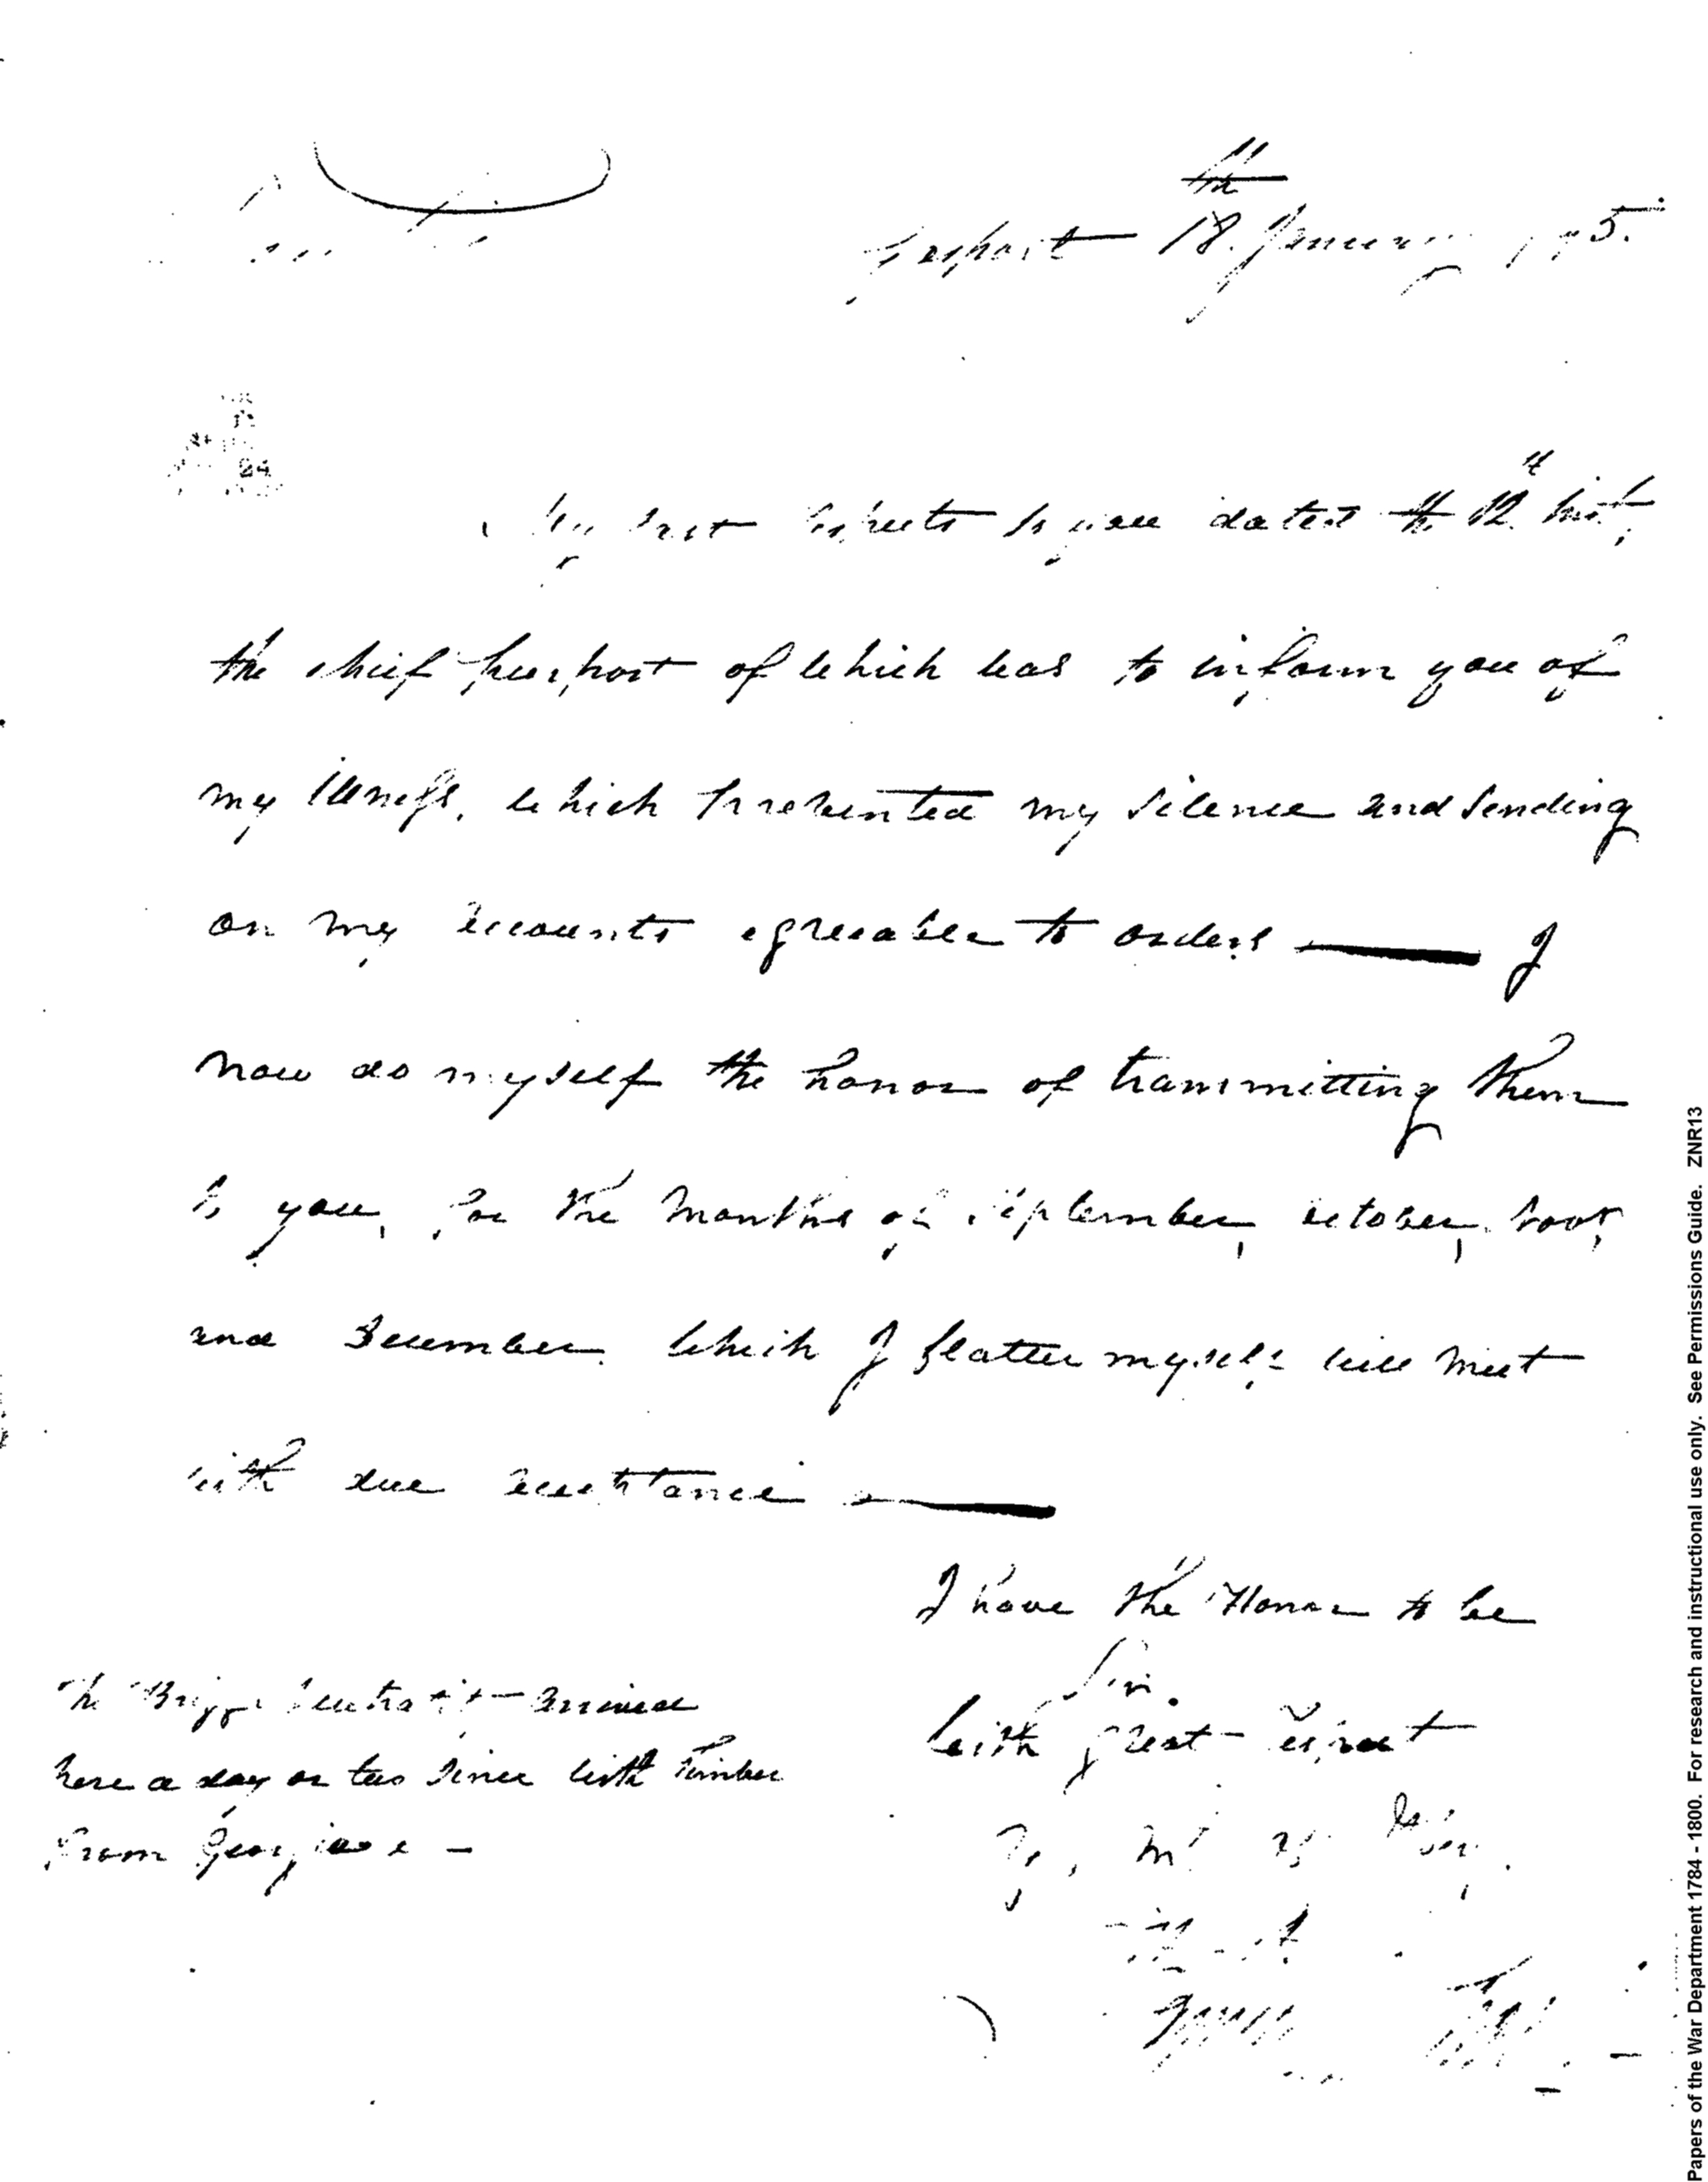 Gosport 18.th January 1795.
My last Respects to you dated th 12th Inst,
the chief purport of which was to inform you of
my Illness, which prevented my silence and sending
on my accounts agreeable to orders — I
now do myself the honor of transmitting them
to you, for the Months of September, October, Novr,
and December. which I flatter myself will meet
with due acceptance —
I have the Honor to be
Sir.
with great respect
The Brigg arrived
here a day or two since with Timber
From Georgia —
Papers of the War Department 1784 - 1800. For research and instructional use only. See Permissions Guide. ZNR13